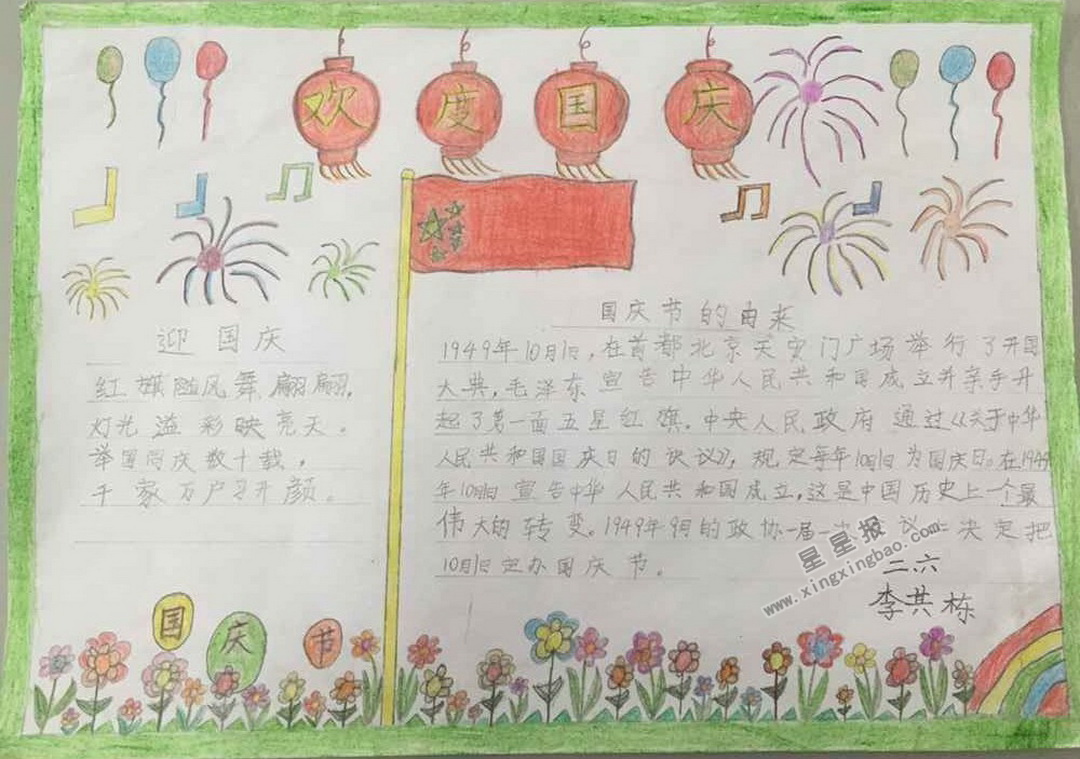 欢度国庆
迎国庆
红旗随风舞翩翩,
灯光溢彩映亮天。
举国同庆数十载,
千家万户习开颜。
国庆节的由来
1949年10月1日,在首都北京天安门广场举行了开国
大典,毛泽东宣告中华人民共和国成立并亲手升
起了第一面五星红旗。中央人民政府通过《关于中华
人民共和国国庆日的决议》,规定每年10月1日为国庆日。在1949
年10月1日宣告中华人民共和国成立,这是中国历史上一个最
伟大的转变。1949年9月的政协一届一 议 决定把
10月1日定为国庆节。
星星报
www.xingxingbao.com
二六
李共栋
国庆节